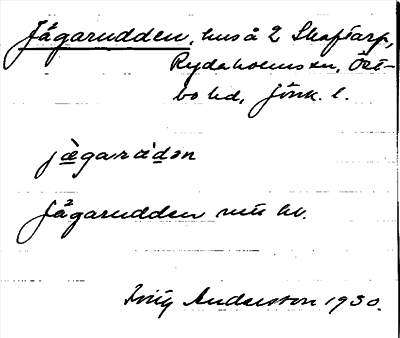 Jågarudden, hus å 2 Skaftarp,
Rydaholms sn, Öst-
bo hd, Jönk. l.
jägarádon
Jågarudden
Andersson 1930.